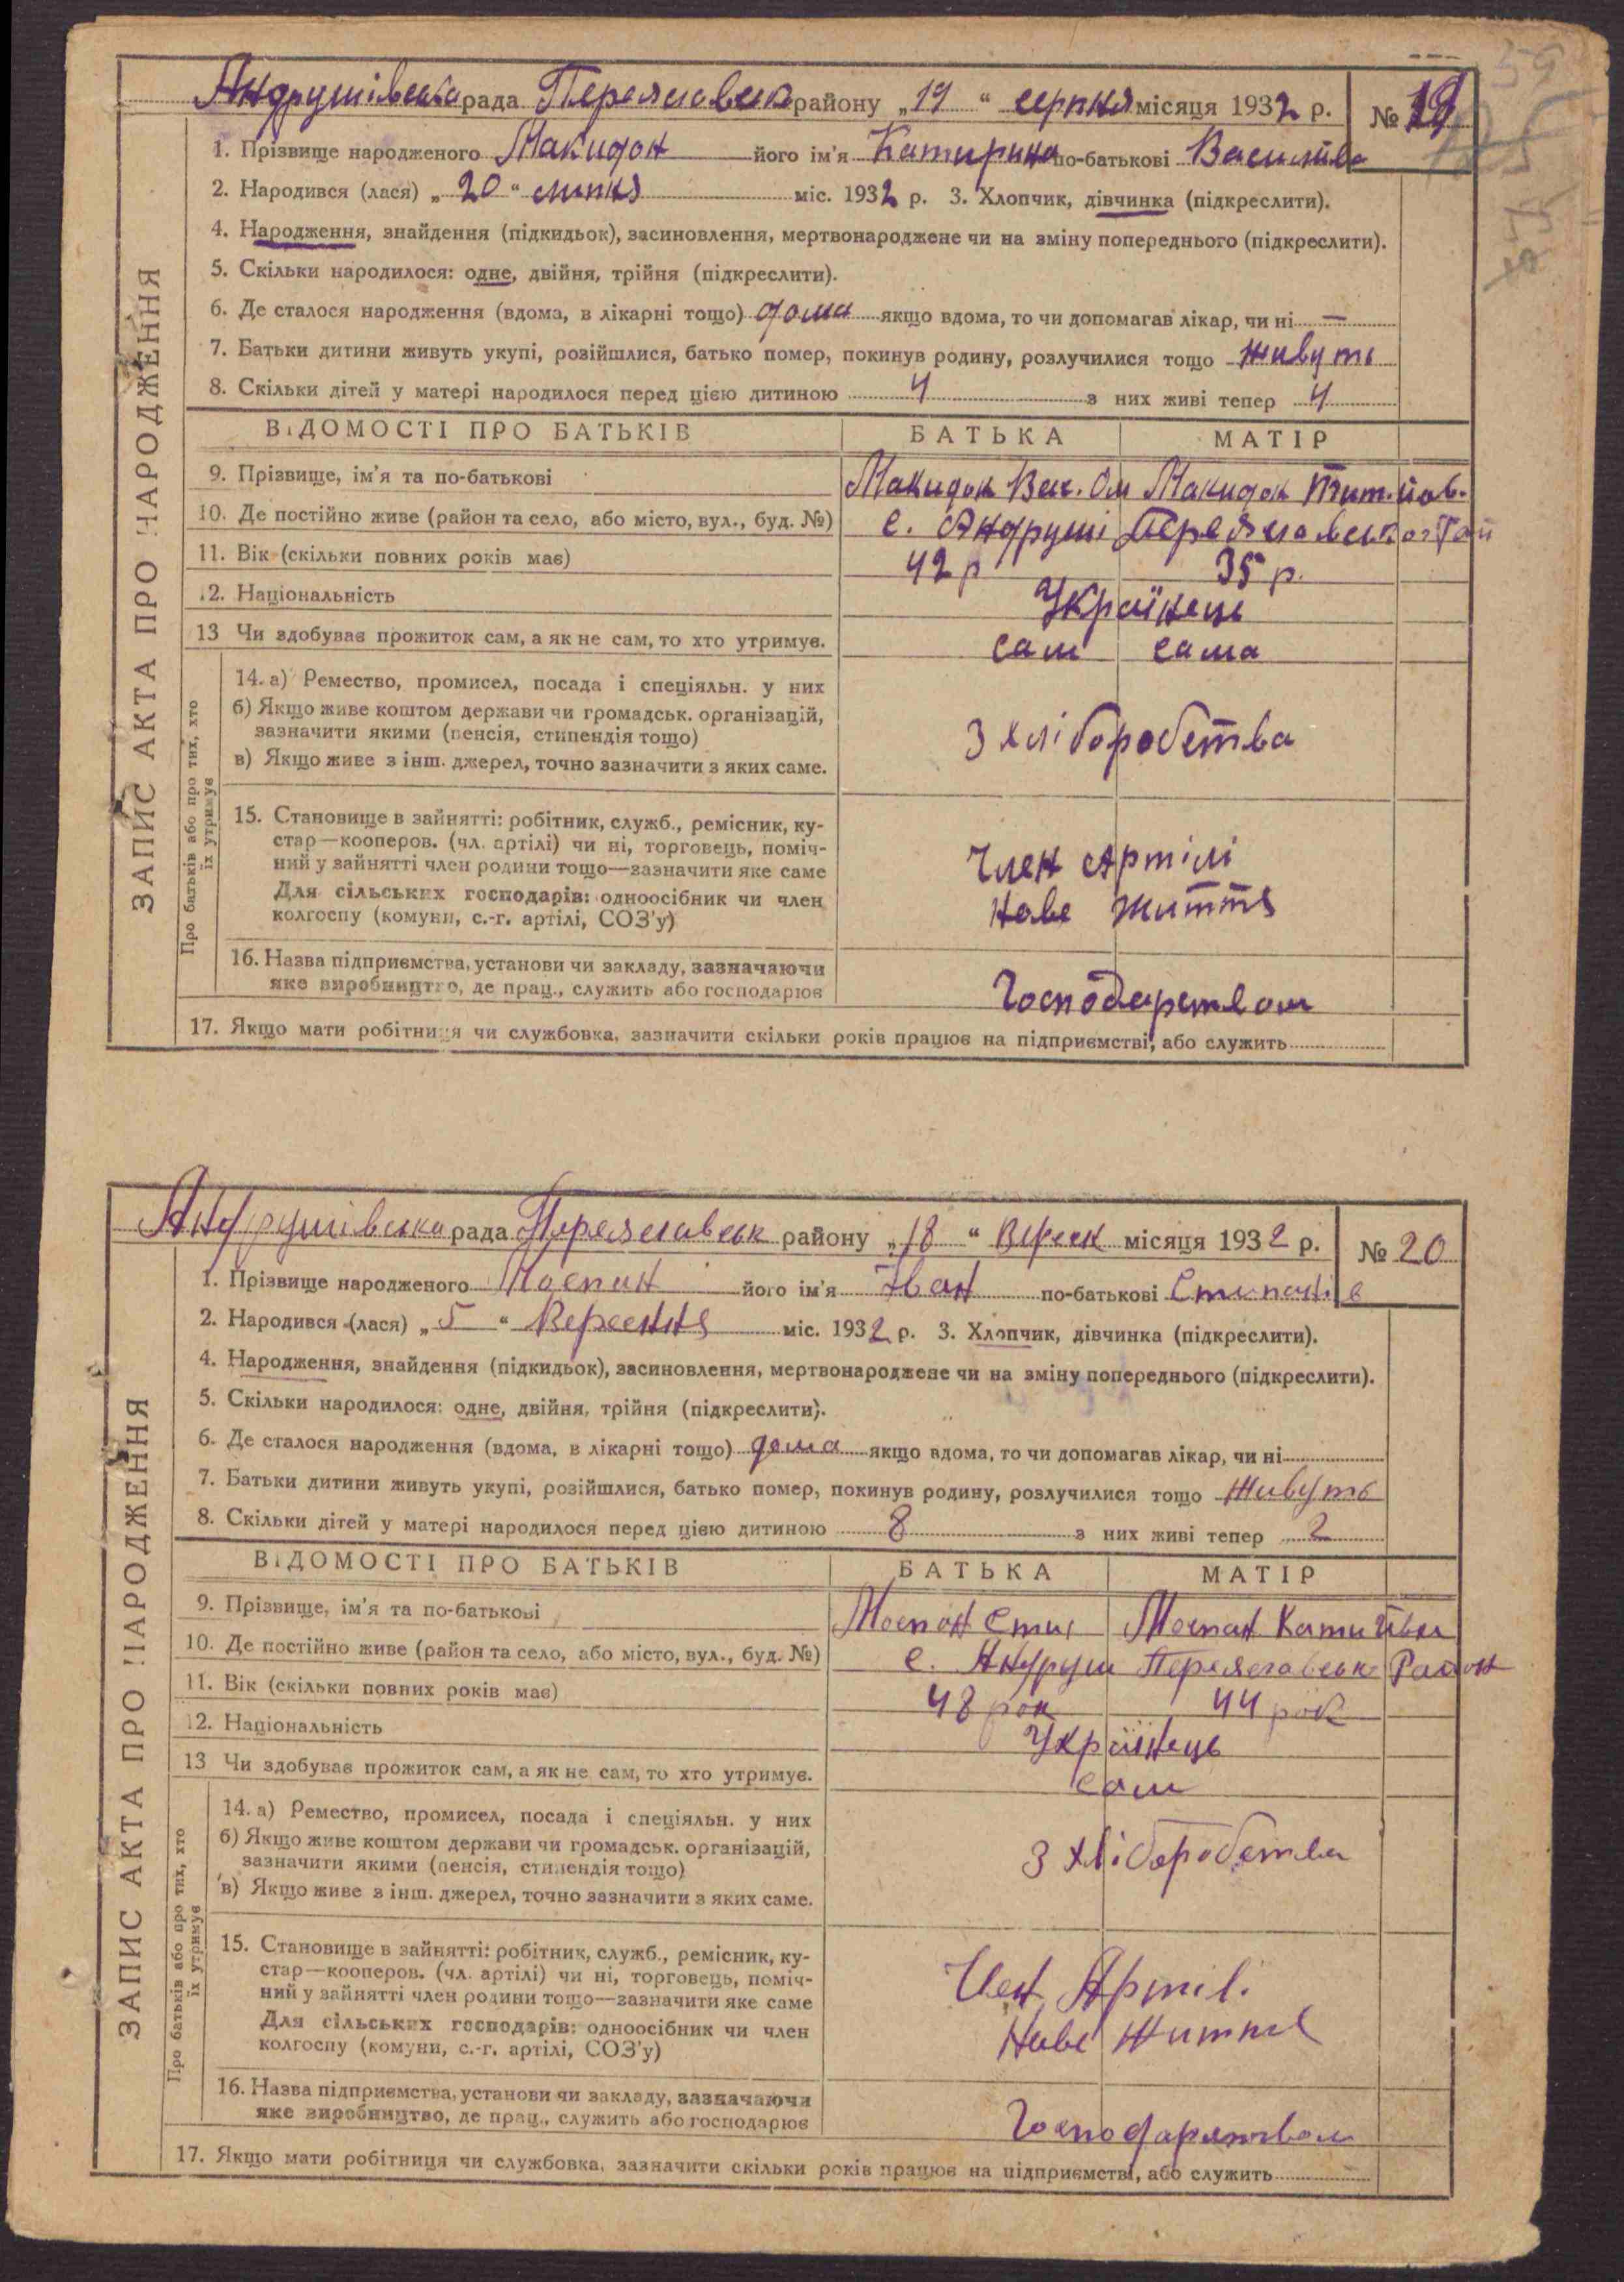 Андрушівська рада Переяславськ району „19“ серпня місяця 1932 р. № 19
1. Прізвище народженого Макидон його ім'я Катирина по-батькові Василівна
2. Народився (лася) „20“ липня міс. 1932 р. 3. Хлопчик, дівчинка (підкреслити).
4. Народження, знайдення (підкидьок), засиновлення, мертвонароджене чи на зміну попереднього (підкреслити).
5. Скільки народилося: одне, двійня, трійня (підкреслити).
6. Де сталося народження (вдома, в лікарні тощо) дома якщо вдома, то чи допомагав лікар, чи ні —
7. Батьки дитини живуть укупі, розійшлися, батько помер, покинув родину, розлучилися тощо живуть
8. Скільки дітей у матері народилося перед цією дитиною 4 з них живі тепер 4
ВІДОМОСТІ ПРО БАТЬКІВ БАТЬКА МАТІР
9. Прізвище, ім'я та по-батькові Макидон Вас. Ом Макидон
10. Де постійно живе (район та село, або місто, вул., буд. №) с. Андруші Переяславського Рай
11. Вік (скільки повних років має) 42 р 35 р.
12. Національність Українець
13 Чи здобуває прожиток сам, а як не сам, то хто утримує. сам сама
14. а) Ремество, промисел, посада і спеціяльн. у них
б) Якщо живе коштом держави чи громадськ. організацій,
зазначити якими (пенсія, стипендія тощо) З хліборобства
в) Якщо живе з інш. джерел, точно зазначити з яких саме.
15. Становище в зайнятті: робітник, служб., ремісник, ку-
стар—кооперов. (чл. артілі) чи ні, торговець, поміч-
ний у зайнятті член родини тощо—зазначити яке саме Член Артілі
Для сільських господарів: одноосібник чи член Нове життя
колгоспу (комуни, с.-г. артілі, СОЗ'у)
16. Назва підприємства, установи чи закладу, зазначаючи
яке виробництво, де прац., служить або господарює Господарством
17. Якщо мати робітниця чи службовка, зазначити скільки років працює на підприємстві, або служить
ЗАПИС АКТА ПРО НАРОДЖЕННЯ
Про батьків або про тих, хто
їх утримує
Андрушівська рада Переяславськ району „18“ Вересн місяця 1932 р. № 20
1. Прізвище народженого Моспан його ім'я Іван по-батькові Степанів
2. Народився (лася) „5“ Вересння міс. 1932 р. 3. Хлопчик, дівчинка (підкреслити).
4. Народження, знайдення (підкидьок), засиновлення, мертвонароджене чи на зміну попереднього (підкреслити).
5. Скільки народилося: одне, двійня, трійня (підкреслити).
6. Де сталося народження (вдома, в лікарні тощо) дома якщо вдома, то чи допомагав лікар, чи ні
7. Батьки дитини живуть укупі, розійшлися, батько помер, покинув родину, розлучилися тощо Живуть
8. Скільки дітей у матері народилося перед цією дитиною 8 з них живі тепер 2
ВІДОМОСТІ ПРО БАТЬКІВ БАТЬКА МАТІР
9. Прізвище, ім'я та по-батькові Моспан Моспан
10. Де постійно живе (район та село, або місто, вул., буд. №) с. Андруш Переяславськ Район
11. Вік (скільки повних років має) 48 рок 44 рок
12. Національність Українець
13 Чи здобуває прожиток сам, а як не сам, то хто утримує. сам
14. а) Ремество, промисел, посада і спеціяльн. у них
б) Якщо живе коштом держави чи громадськ. організацій,
зазначити якими (пенсія, стипендія тощо) З хліборобства
в) Якщо живе з інш. джерел, точно зазначити з яких саме.
15. Становище в зайнятті: робітник, служб., ремісник, ку-
стар—кооперов. (чл. артілі) чи ні, торговець, поміч-
ний у зайнятті член родини тощо—зазначити яке саме Член Артілі
Для сільських господарів: одноосібник чи член Нове Життя
колгоспу (комуни, с.-г. артілі, СОЗ'у)
16. Назва підприємства, установи чи закладу, зазначаючи
яке виробництво, де прац., служить або господарює Господарством
17. Якщо мати робітниця чи службовка, зазначити скільки років працює на підприємстві, або служить
ЗАПИС АКТА ПРО НАРОДЖЕННЯ
Про батьків або про тих, хто
їх утримує